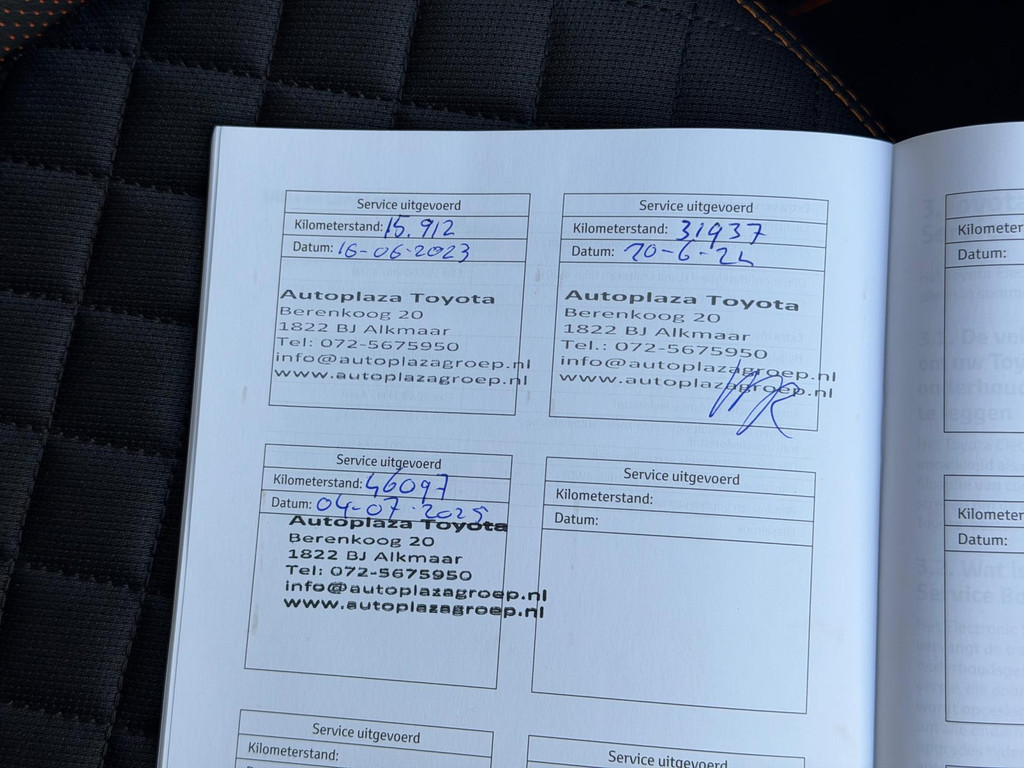 Service uitgevoerd
Kilometerstand: 15.912
Datum: 16-06-2023
Autoplaza Toyota
Berenkoog 20
1822 BJ Alkmaar
Tel: 072-5675950
info@autoplazagroep.nl
www.autoplazagroep.nl
Service uitgevoerd
Kilometerstand: 31937
Datum: 20-6-24
Autoplaza Toyota
Berenkoog 20
1822 BJ Alkmaar
Tel.: 072-5675950
info@autoplazagroep.nl
www.autoplazagroep.nl
Service uitgevoerd
Kilometerstand: 46097
Datum: 04-07-2025
Autoplaza Toyota
Berenkoog 20
1822 BJ Alkmaar
Tel: 072-5675950
info@autoplazagroep.nl
www.autoplazagroep.nl
Service uitgevoerd
Kilometerstand:
Datum:
Service uitgevoerd
Kilometerstand:
Service uitgevoerd
Kilometer
Datum:
Kilometer
Datum: